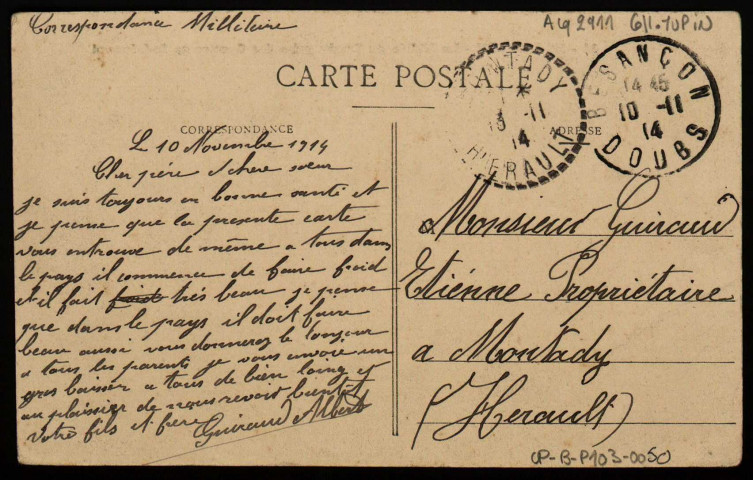 Correspondance Millitaire
A 19 2911 GILTUPIN
CARTE POSTALE
MONTADY
* 13 -11 14
HERAULT
BESANÇON
14 45
10 -11
14
DOUBS
CORRESPONDANCE
ADRESSE
L 10 Novembre 1914
Cher père et chere sœur
je suis toujours en bonne santé et
je pense que la presente carte
vous entrouve de même a tous dans
le pays il commence de faire froid
et il fait froid très beau je pense
que dans le pays il doit faire
beau aussi vous donnerez le bonjour
a tous les parents je vous envoie un
gros baiser a tous de bien loing et
au plaissir de nous revoir bientôt
votre fils et frère Guiraud Albert
Monsieur Guiraud
Etiénne Propriétaire
a Montady
(Herault)
CP-B-P103-0050